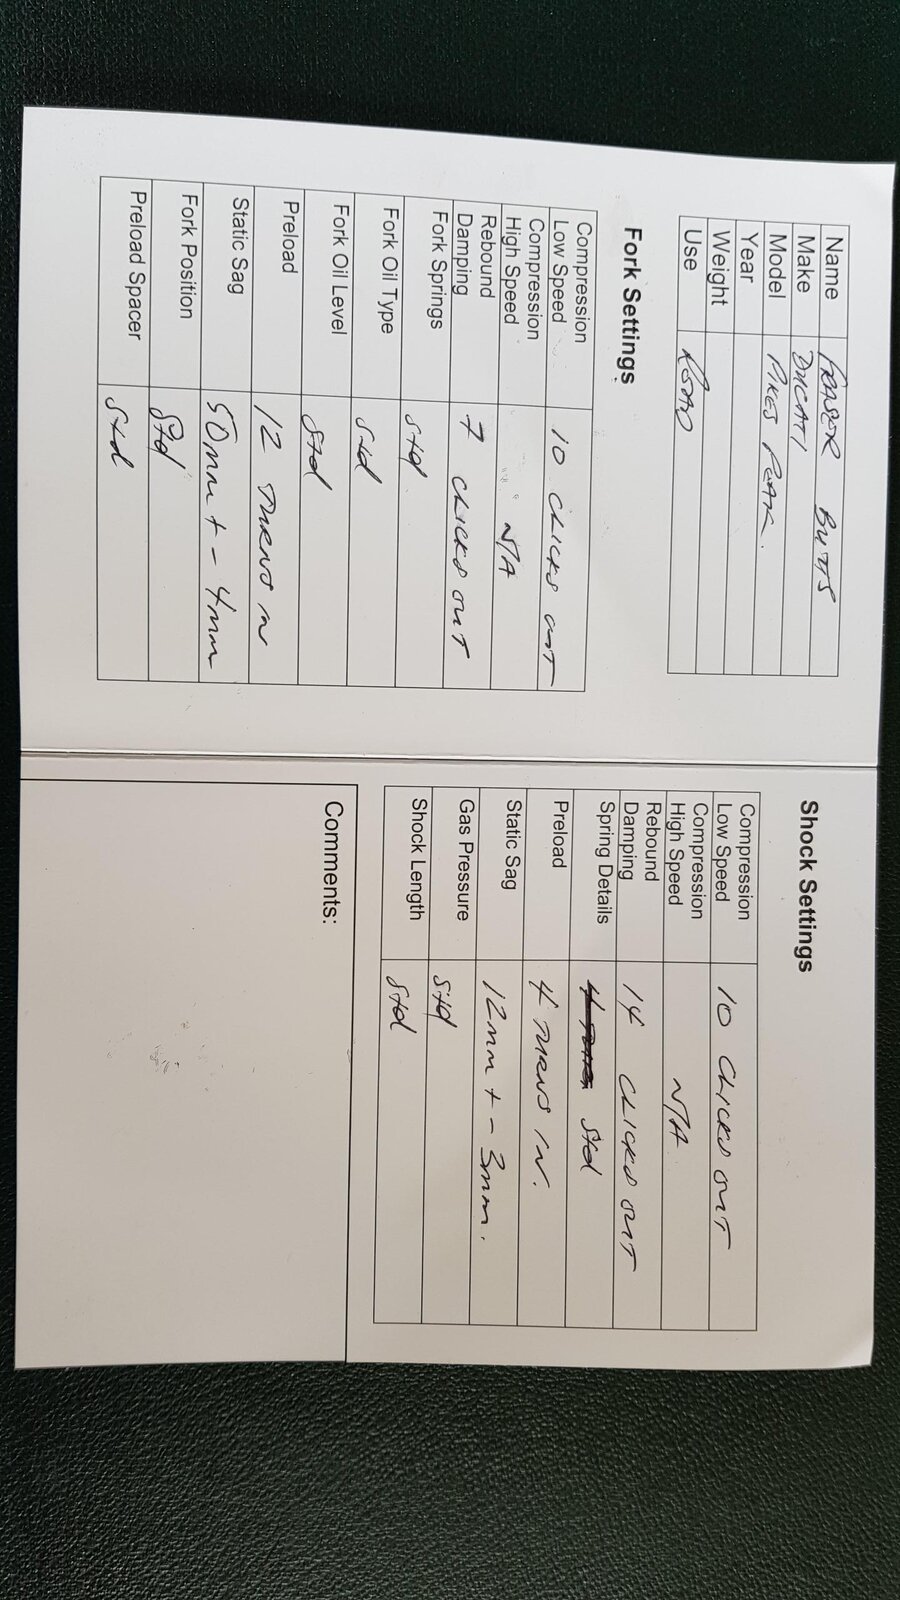 Name FRASER BUTTS
Make DUCATI
Model PIKES PEAK.
Year
Weight
Use ROAD
Fork Settings
Compression
Low Speed 10 CLICKS OUT
Compression
High Speed N/A
Rebound
Damping 7 CLICKS OUT
Fork Springs Std
Fork Oil Type Std
Fork Oil Level Std
Preload 12 TURNS IN
Static Sag 50mm + - 4mm
Fork Position Std
Preload Spacer Std
Shock Settings
Compression
Low Speed 10 CLICKS OUT
Compression
High Speed N/A
Rebound
Damping 14 CLICKS OUT
Spring Details Std
Preload 4 TURNS IN.
Static Sag 12mm + - 3mm.
Gas Pressure Std
Shock Length Std
Comments: